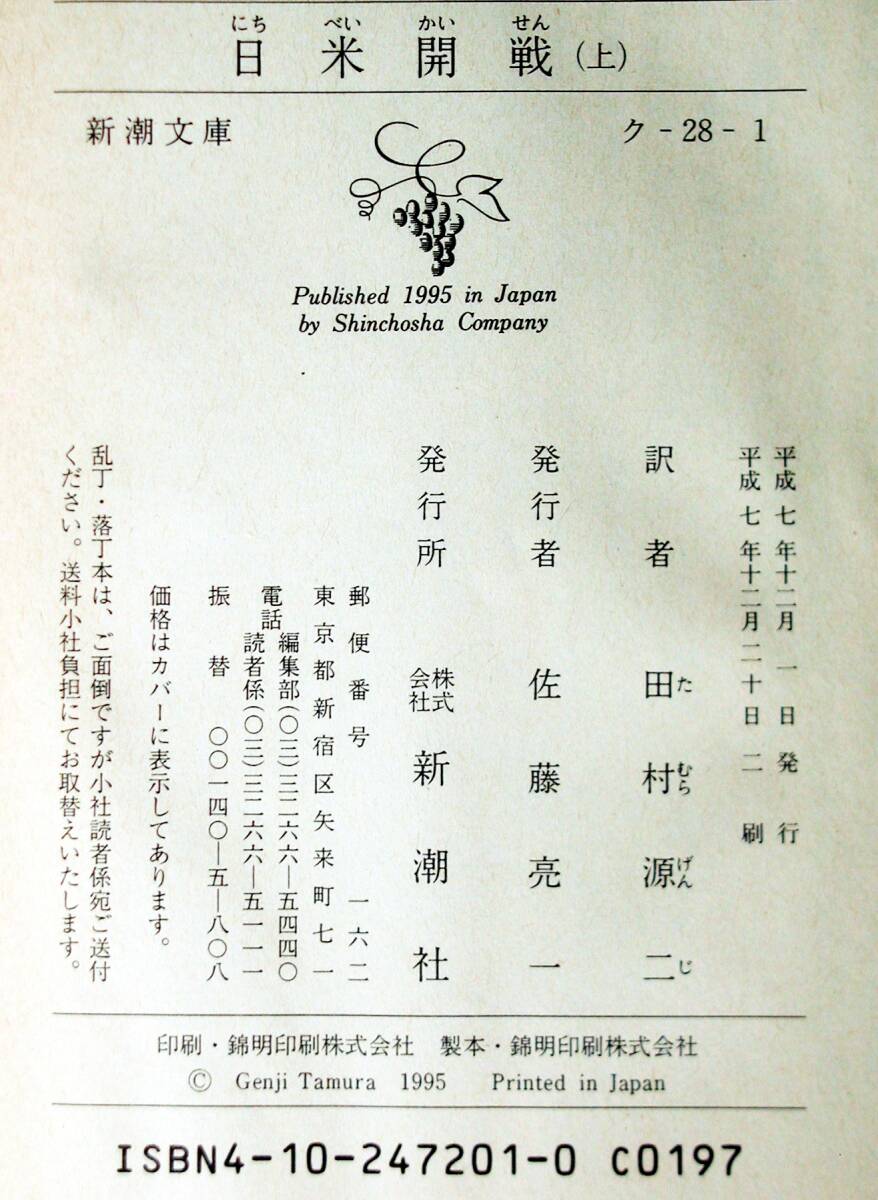 にち べい かい せん
日米開戦(上)
新潮文庫 ク-28-1
Published 1995 in Japan
by Shinchosha Company
平成七年十二月一日発行
平成七年十二月二十日二刷
訳者 田村源二
た むら げん じ
発行者 佐藤亮一
発行所 株式会社新潮社
郵便番号 一六二
東京都新宿区矢来町七一
電話 編集部(〇三)三二六六―五四四〇
読者係(〇三)三二六六―五一一一
振替 〇〇一四〇―五―八〇八
価格はカバーに表示してあります。
乱丁・落丁本は、ご面倒ですが小社読者係宛ご送付
ください。送料小社負担にてお取替えいたします。
印刷・錦明印刷株式会社 製本・錦明印刷株式会社
© Genji Tamura 1995 Printed in Japan
ISBN4-10-247201-0 C0197